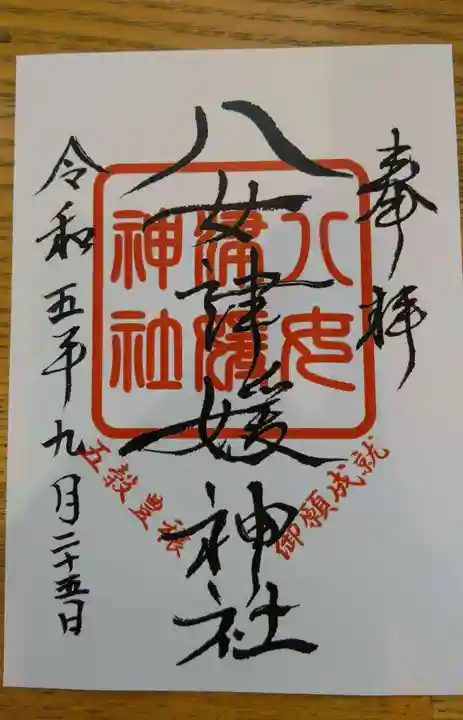 奉拝
八女津媛神社
八女
津媛
神社
御願成就
五穀豊穣
令和五年九月二十五日